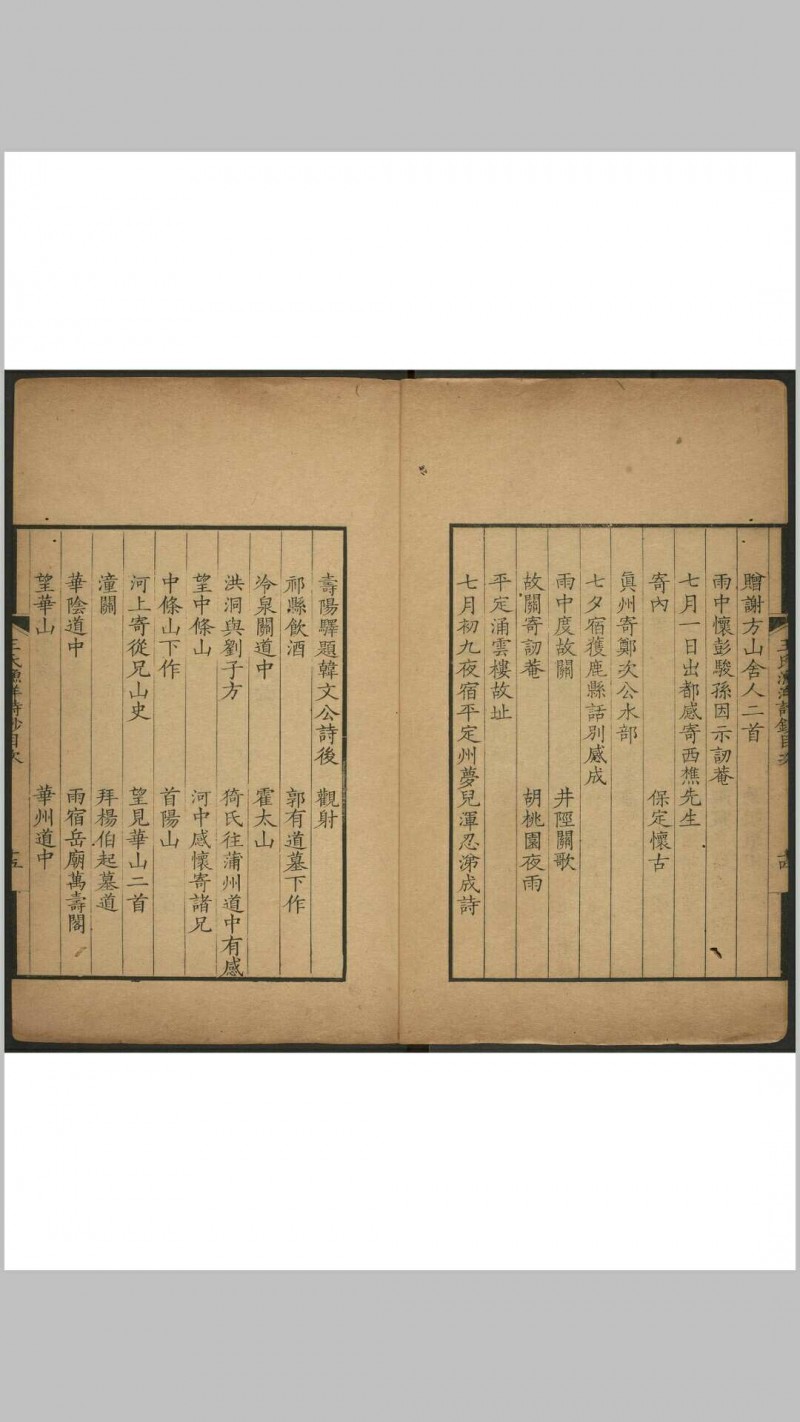 贈謝方山舍人二首
雨中懷彭駿孫因示訒菴
七月一日出都感寄西樵先生
寄內 保定懷古
眞州寄鄭次公水部
七夕宿獲鹿縣話別感成
雨中度故關 井陘關歌
故關寄訒菴 胡桃園夜雨
平定涌雲樓故址
七月初九夜宿平定州夢兒渾忍涕成詩
壽陽驛題韓文公詩後 觀射
祁縣飲酒 郭有道墓下作
冷泉關道中 霍太山
洪洞與劉子方 猗氏往蒲州道中有感
望中條山 河中感懷寄諸兄
中條山下作 首陽山
河上寄從兄山史 望見華山二首
潼關 拜楊伯起墓道
華陰道中 雨宿岳廟萬壽閣
望華山 華州道中
王氏漁洋詩鈔目次 十五